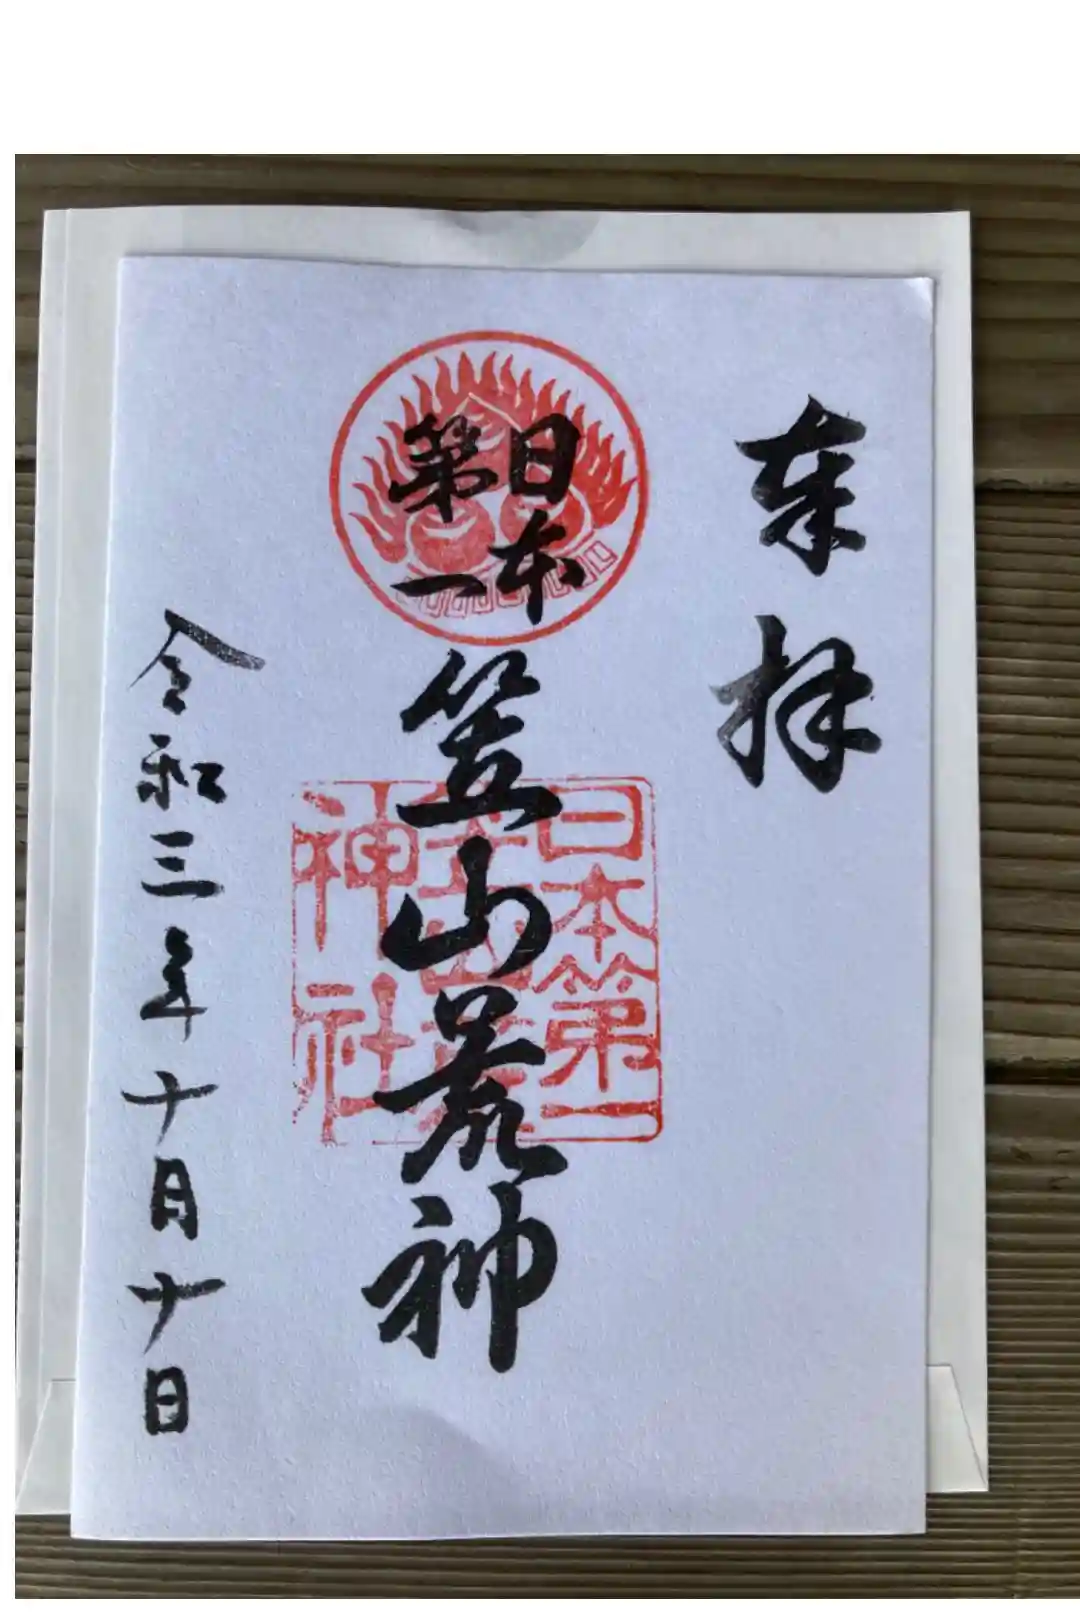 奉拝
日本
第一
笠山荒神
日本第一
笠山荒
神社
令和三年十月十日